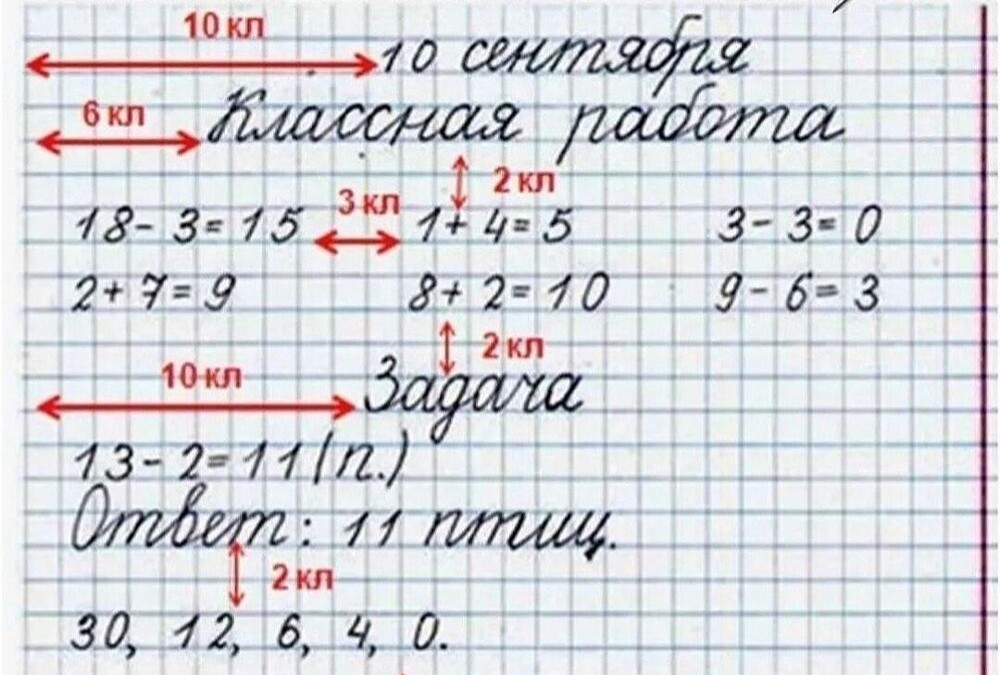 10 кл
10 сентября
6 кл
Классная работа
2 кл
18 - 3 = 15 3 кл 1 + 4 = 5 3 - 3 = 0
2 + 7 = 9 8 + 2 = 10 9 - 6 = 3
2 кл
10 кл
Задача
13 - 2 = 11 (п.)
Ответ: 11 птиц.
2 кл
30, 12, 6, 4, 0.